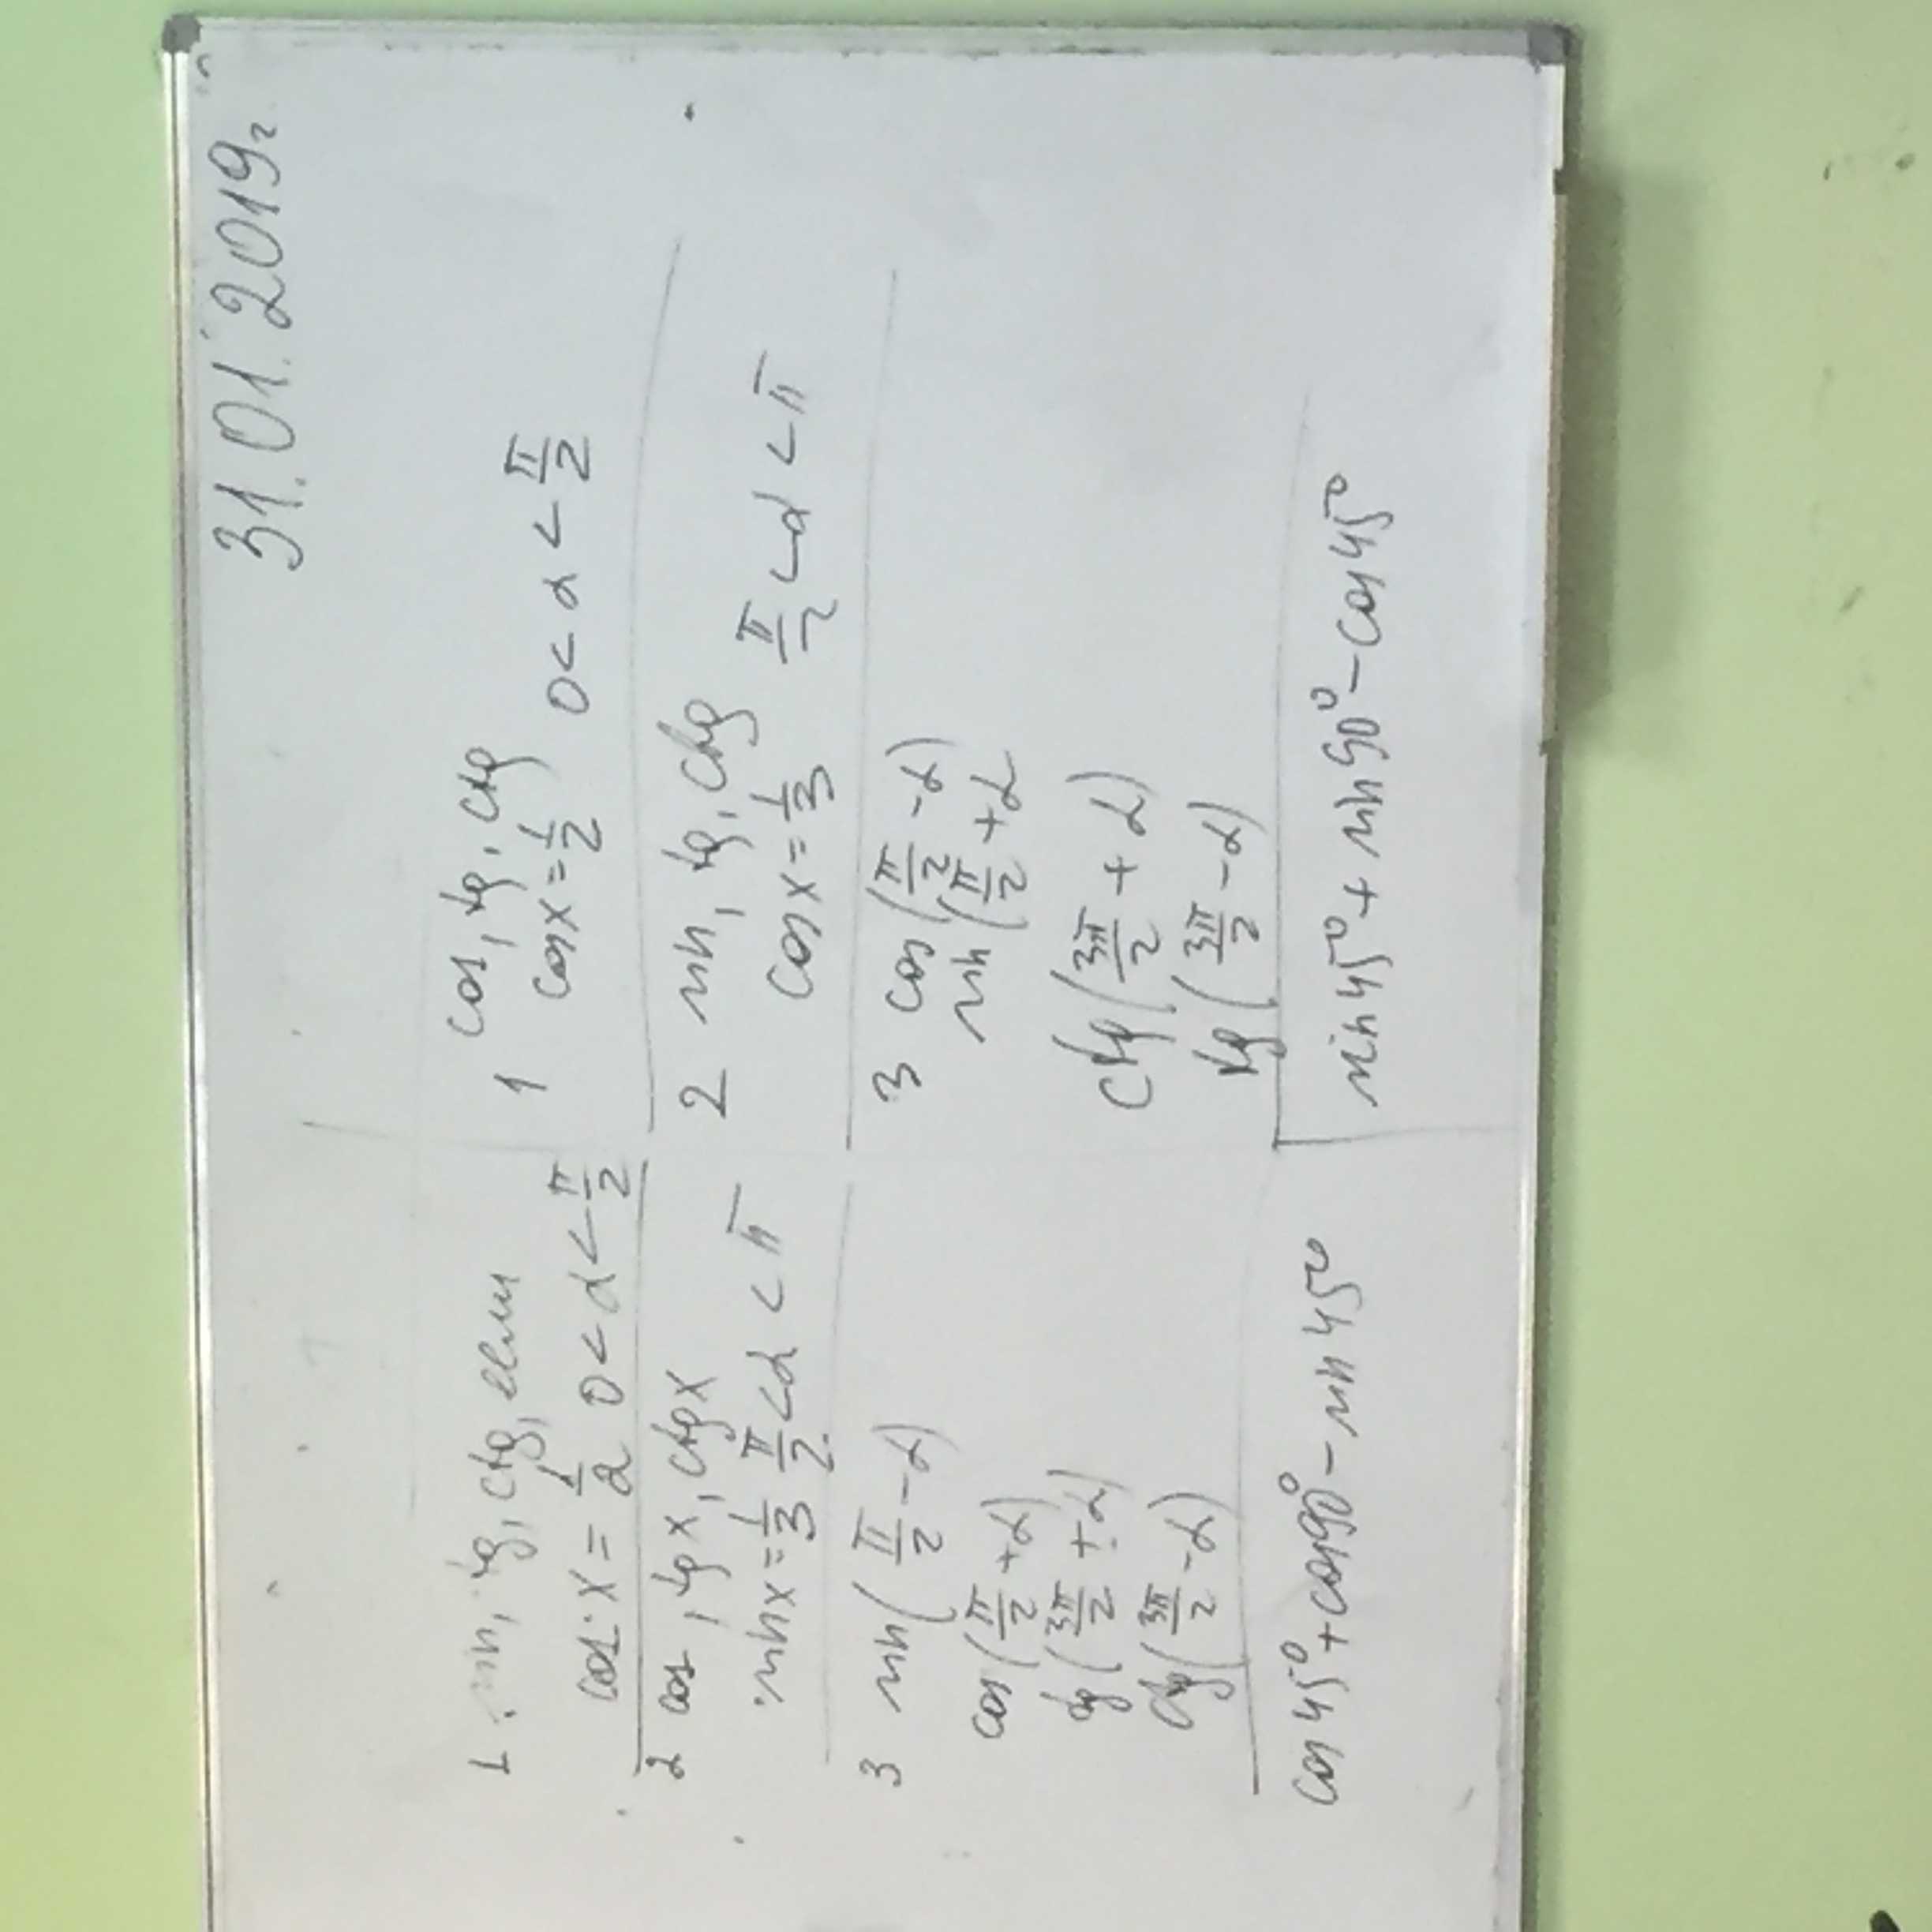 31.01.2019г
1 sin, tg, ctg, если
cos x = 1/2 0 < α < π/2
2 cos, tg x, ctg x
sin x = 1/3 π/2 < α < π
3 sin(π/2 - α)
cos(π/2 + α)
tg(3π/2 + α)
ctg(3π/2 - α)
cos 45° + cos 90° - sin 45°
cos, tg, ctg
1 cos x = 1/2 0 < α < π/2
2 sin, tg, ctg
cos x = 1/3 π/2 < α < π
3 cos(π/2 - α)
sin(π/2 + α
ctg(3π/2 + α)
tg(3π/2 - α)
sin 45° + sin 90° - cos 45°